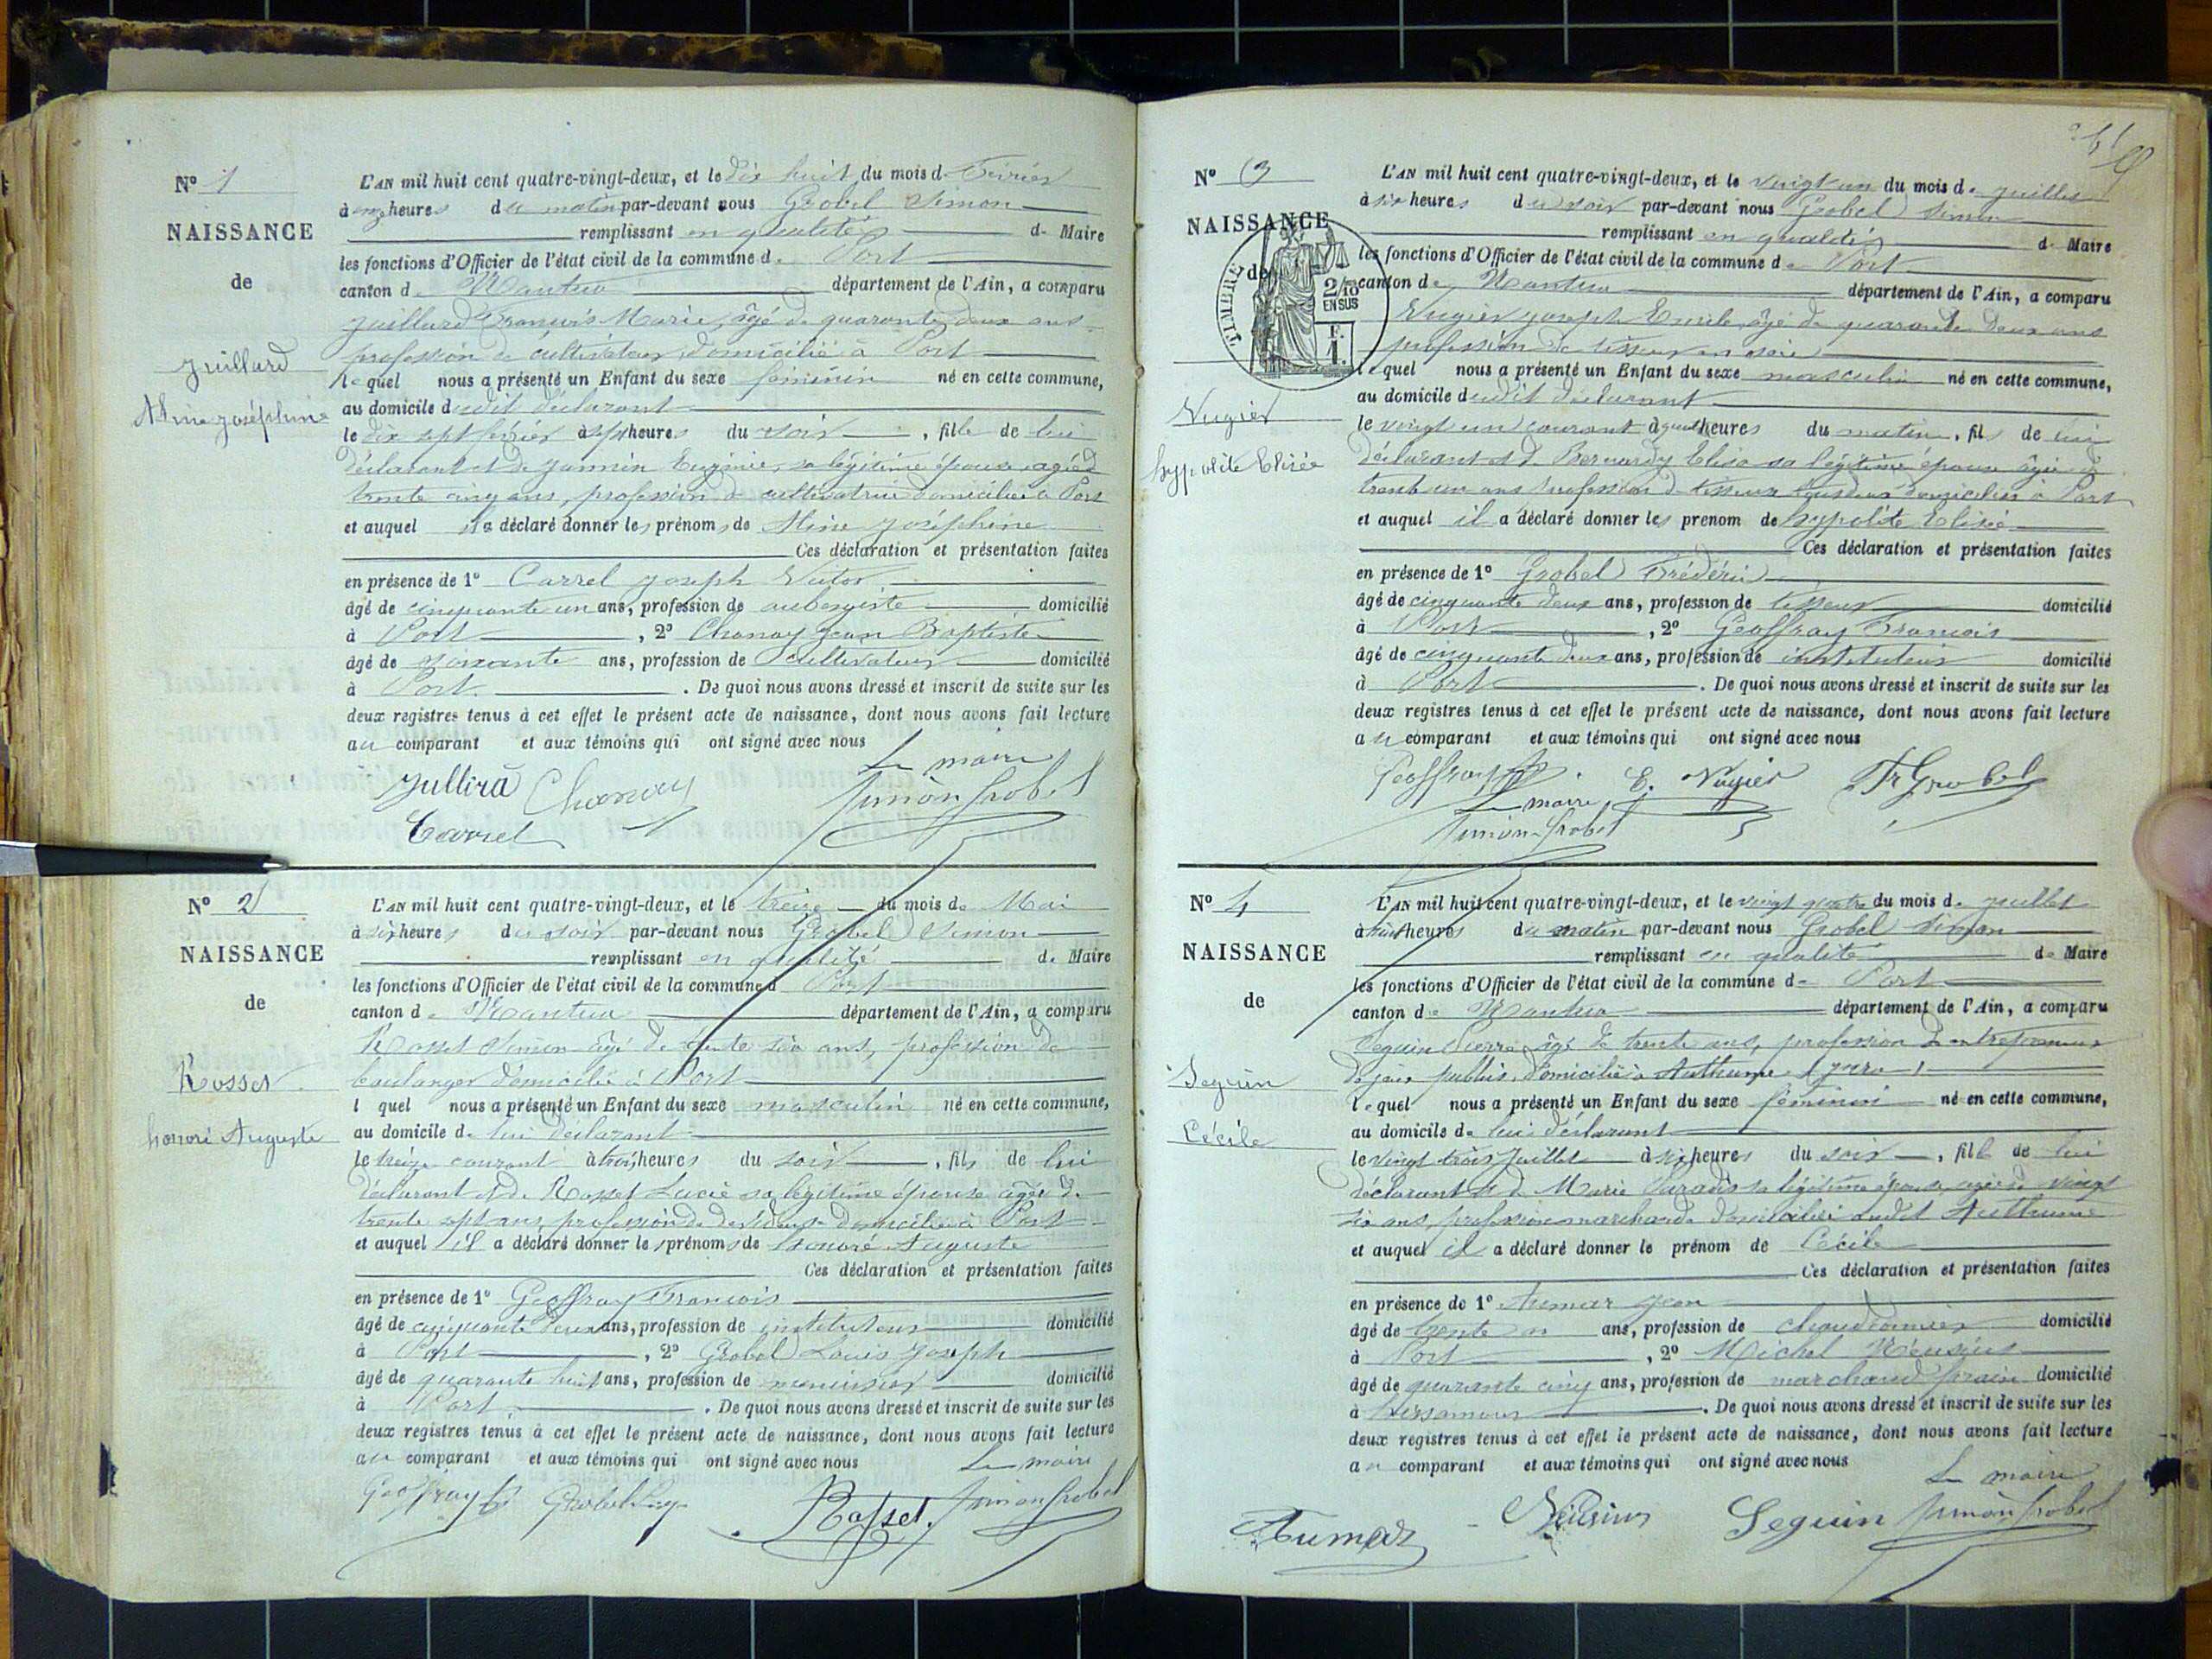 N° 1
NAISSANCE
de
Juillard
Aline Joséphine
L'AN mil huit cent quatre-vingt-deux, et le dix huit du mois de Février
à onze heures du matin par-devant nous Grobel Simon
remplissant en qualité de Maire
les fonctions d'Officier de l'état civil de la commune de Port
canton de Nantua département de l'Ain, a comparu
Juillard François Marie, âgé de quarante deux ans
profession de cultivateur domicilié à Port
lequel nous a présenté un Enfant du sexe féminin né en cette commune,
au domicile dudit déclarant
le dix sept février à sept heures du soir, fille de lui
déclarant et de Jannin Eugénie, sa légitime épouse agée de
trente cinq ans, profession de cultivatrice domiciliée à Port
et auquel il a déclaré donner les prénoms de Aline Joséphine
Ces déclaration et présentation faites
en présence de 1° Carrel Joseph Victor
âgé de cinquante un ans, profession de aubergiste domicilié
à Port, 2° Chanay Jean Baptiste
âgé de soixante ans, profession de cultivateur domicilié
à Port. De quoi nous avons dressé et inscrit de suite sur les
deux registres tenus à cet effet le présent acte de naissance, dont nous avons fait lecture
au comparant et aux témoins qui ont signé avec nous
Le maire
Chanay Simon Grobel
Carrel
N° 2
NAISSANCE
de
Rosset
honoré Auguste
L'AN mil huit cent quatre-vingt-deux, et le treize du mois de Mai
à six heures du soir par-devant nous Grobel Simon
remplissant en qualité de Maire
les fonctions d'Officier de l'état civil de la commune d Port
canton de Nantua département de l'Ain, a comparu
Rosset Simon âgé de trente six ans, profession de
boulanger domicilié à Port
l quel nous a présenté un Enfant du sexe masculin né en cette commune,
au domicile de lui déclarant
le treize courant à trois heures du soir, fils de lui
déclarant et de Rosset Lucie sa légitime épouse agée de
trente sept ans, profession de domiciliée à Port
et auquel il a déclaré donner les prénoms de honoré Auguste
Ces déclaration et présentation faites
en présence de 1° Geoffray François
âgé de cinquante deux ans, profession de instituteur domicilié
à Port, 2° Grobel Louis Joseph
âgé de quarante huit ans, profession de menuisier domicilié
à Port. De quoi nous avons dressé et inscrit de suite sur les
deux registres tenus à cet effet le présent acte de naissance, dont nous avons fait lecture
au comparant et aux témoins qui ont signé avec nous
Le maire
Geoffray Rosset Simon Grobel
N° 3
NAISSANCE
de
TIMBRE
2/10
EN SUS
F.
1.
Nugier
hypolite Elisée
L'AN mil huit cent quatre-vingt-deux, et le vingt un du mois de juillet
à six heures du soir par-devant nous Grobel Simon
remplissant en qualité de Maire
les fonctions d'Officier de l'état civil de la commune de Port
canton de Nantua département de l'Ain, a comparu
Nugier Joseph Emile, âgé de quarante deux ans
profession de tisseur en soie
lequel nous a présenté un Enfant du sexe masculin né en cette commune,
au domicile dudit déclarant
le vingt un courant à heures du matin, fils de lui
déclarant et de Bernardy Elisa sa légitime épouse âgée de
trente un ans profession de tisseuse tous deux domiciliés à Port
et auquel il a déclaré donner les prenom de hypolite Elisée
Ces déclaration et présentation faites
en présence de 1° Grobel Frédéric
âgé de cinquante deux ans, profession de tisseur domicilié
à Port, 2° Geoffray François
âgé de cinquante deux ans, profession de instituteur domicilié
à Port. De quoi nous avons dressé et inscrit de suite sur les
deux registres tenus à cet effet le présent acte de naissance, dont nous avons fait lecture
au comparant et aux témoins qui ont signé avec nous
Geoffray E. Nugier Fr Grobel
Le maire
Simon Grobel
N° 4
NAISSANCE
de
Seguin
Cécile
L'AN mil huit cent quatre-vingt-deux, et le vingt quatre du mois de juillet
à huit heures du matin par-devant nous Grobel Simon
remplissant en qualité de Maire
les fonctions d'Officier de l'état civil de la commune de Port
canton de Nantua département de l'Ain, a comparu
Seguin Pierre âgé de trente ans, profession d'entrepreneur
de jeux publics, domicilié à Authume (Jura)
lequel nous a présenté un Enfant du sexe féminin né en cette commune,
au domicile de lui déclarant
le vingt trois Juillet à six heures du soir, fille de lui
déclarant et de Marie Paradis sa légitime épouse, agée de vingt
six ans, profession marchande domiciliée audit Authume
et auquel il a déclaré donner le prénom de Cécile
Ces déclaration et présentation faites
en présence de 1° Aumar Jean
âgé de trente ans, profession de chaudronnier domicilié
à Port, 2° Michel Néusius
âgé de quarante cinq ans, profession de marchand forain domicilié
à . De quoi nous avons dressé et inscrit de suite sur les
deux registres tenus à cet effet le présent acte de naissance, dont nous avons fait lecture
au comparant et aux témoins qui ont signé avec nous
Le maire
Aumar Néusius Seguin Simon Grobel